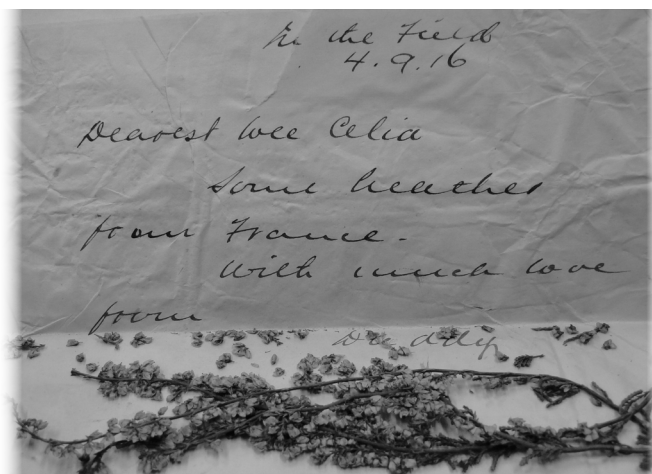 In the Field
4.9.16
Dearest wee Celia
Some heather
from France.
With much love
from
Daddy